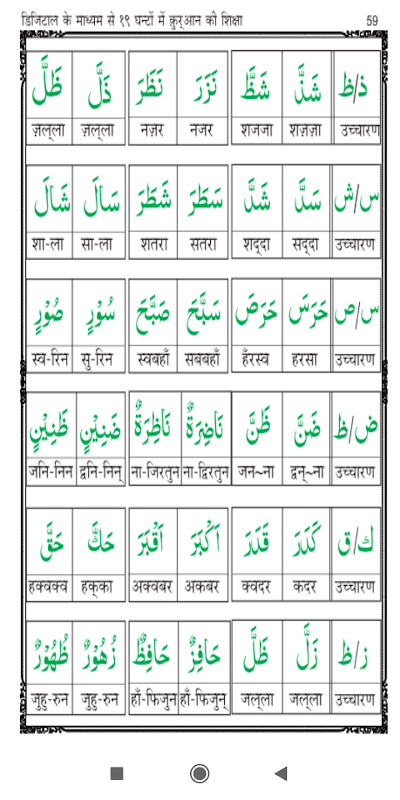 डिजिटाल के माध्यम से १९ घन्टों में क़ुर्आन की शिक्षा 59
ذ/ظ شَذَّ شَظَّ نَزَرَ نَظَرَ ذَلَّ ظَلَّ
ज़ल्ला ज़ल्ला नज़र नजर शजजा शज़ज़ा उच्चारण
س/ش سَدَّ شَدَّ سَطَرَ شَطَرَ سَالَ شَالَ
शा-ला सा-ला शतरा सतरा शद्दा सद्दा उच्चारण
س/ص حَرَسَ حَرَصَ سَبَّحَ صَبَّحَ سُوْرٍ صُوْرٍ
स्व-रिन सु-रिन स्वबहाँ सबबहाँ हँरस्व हरसा उच्चारण
ض/ظ ضَنَّ ظَنَّ نَاضِرَةٌ نَاظِرَةٌ ضَنِيْنٍ ظَنِيْنٍ
जनि-निन द्वनि-निन् ना-जिरतुन ना-द्विरतुन जन~ना द्वन्~ना उच्चारण
ك/ق كَدَرَ قَدَرَ اَكْبَرَ اَقْبَرَ حَكَّ حَقَّ
हक्वक्व हक्का अक्वबर अकबर क्वदर कदर उच्चारण
ز/ظ زَلَّ ظَلَّ حَافِزٌ حَافِظٌ زُهُوْرٌ ظُهُوْرٌ
जुहु-रुन जुहु-रुन हाँ-फिजुन हाँ-फिजुन् जल्ला जल्ला उच्चारण